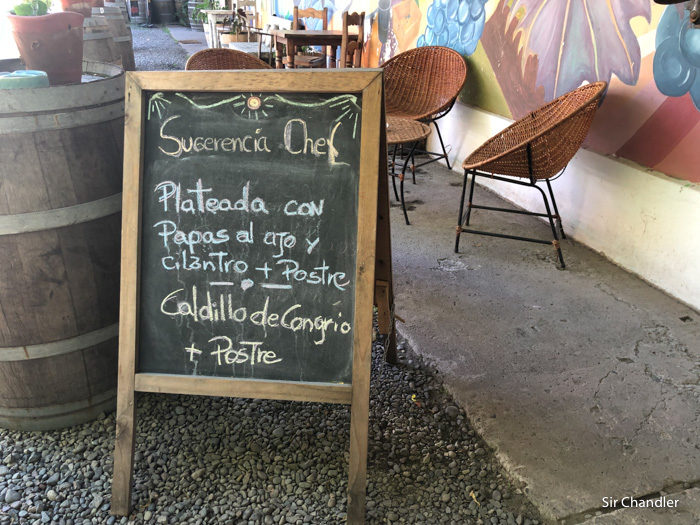 Sugerencia Chef
Plateada con
Papas al ajo y
cilantro + Postre
Caldillo de Congrio
+ Postre
Sir Chandler